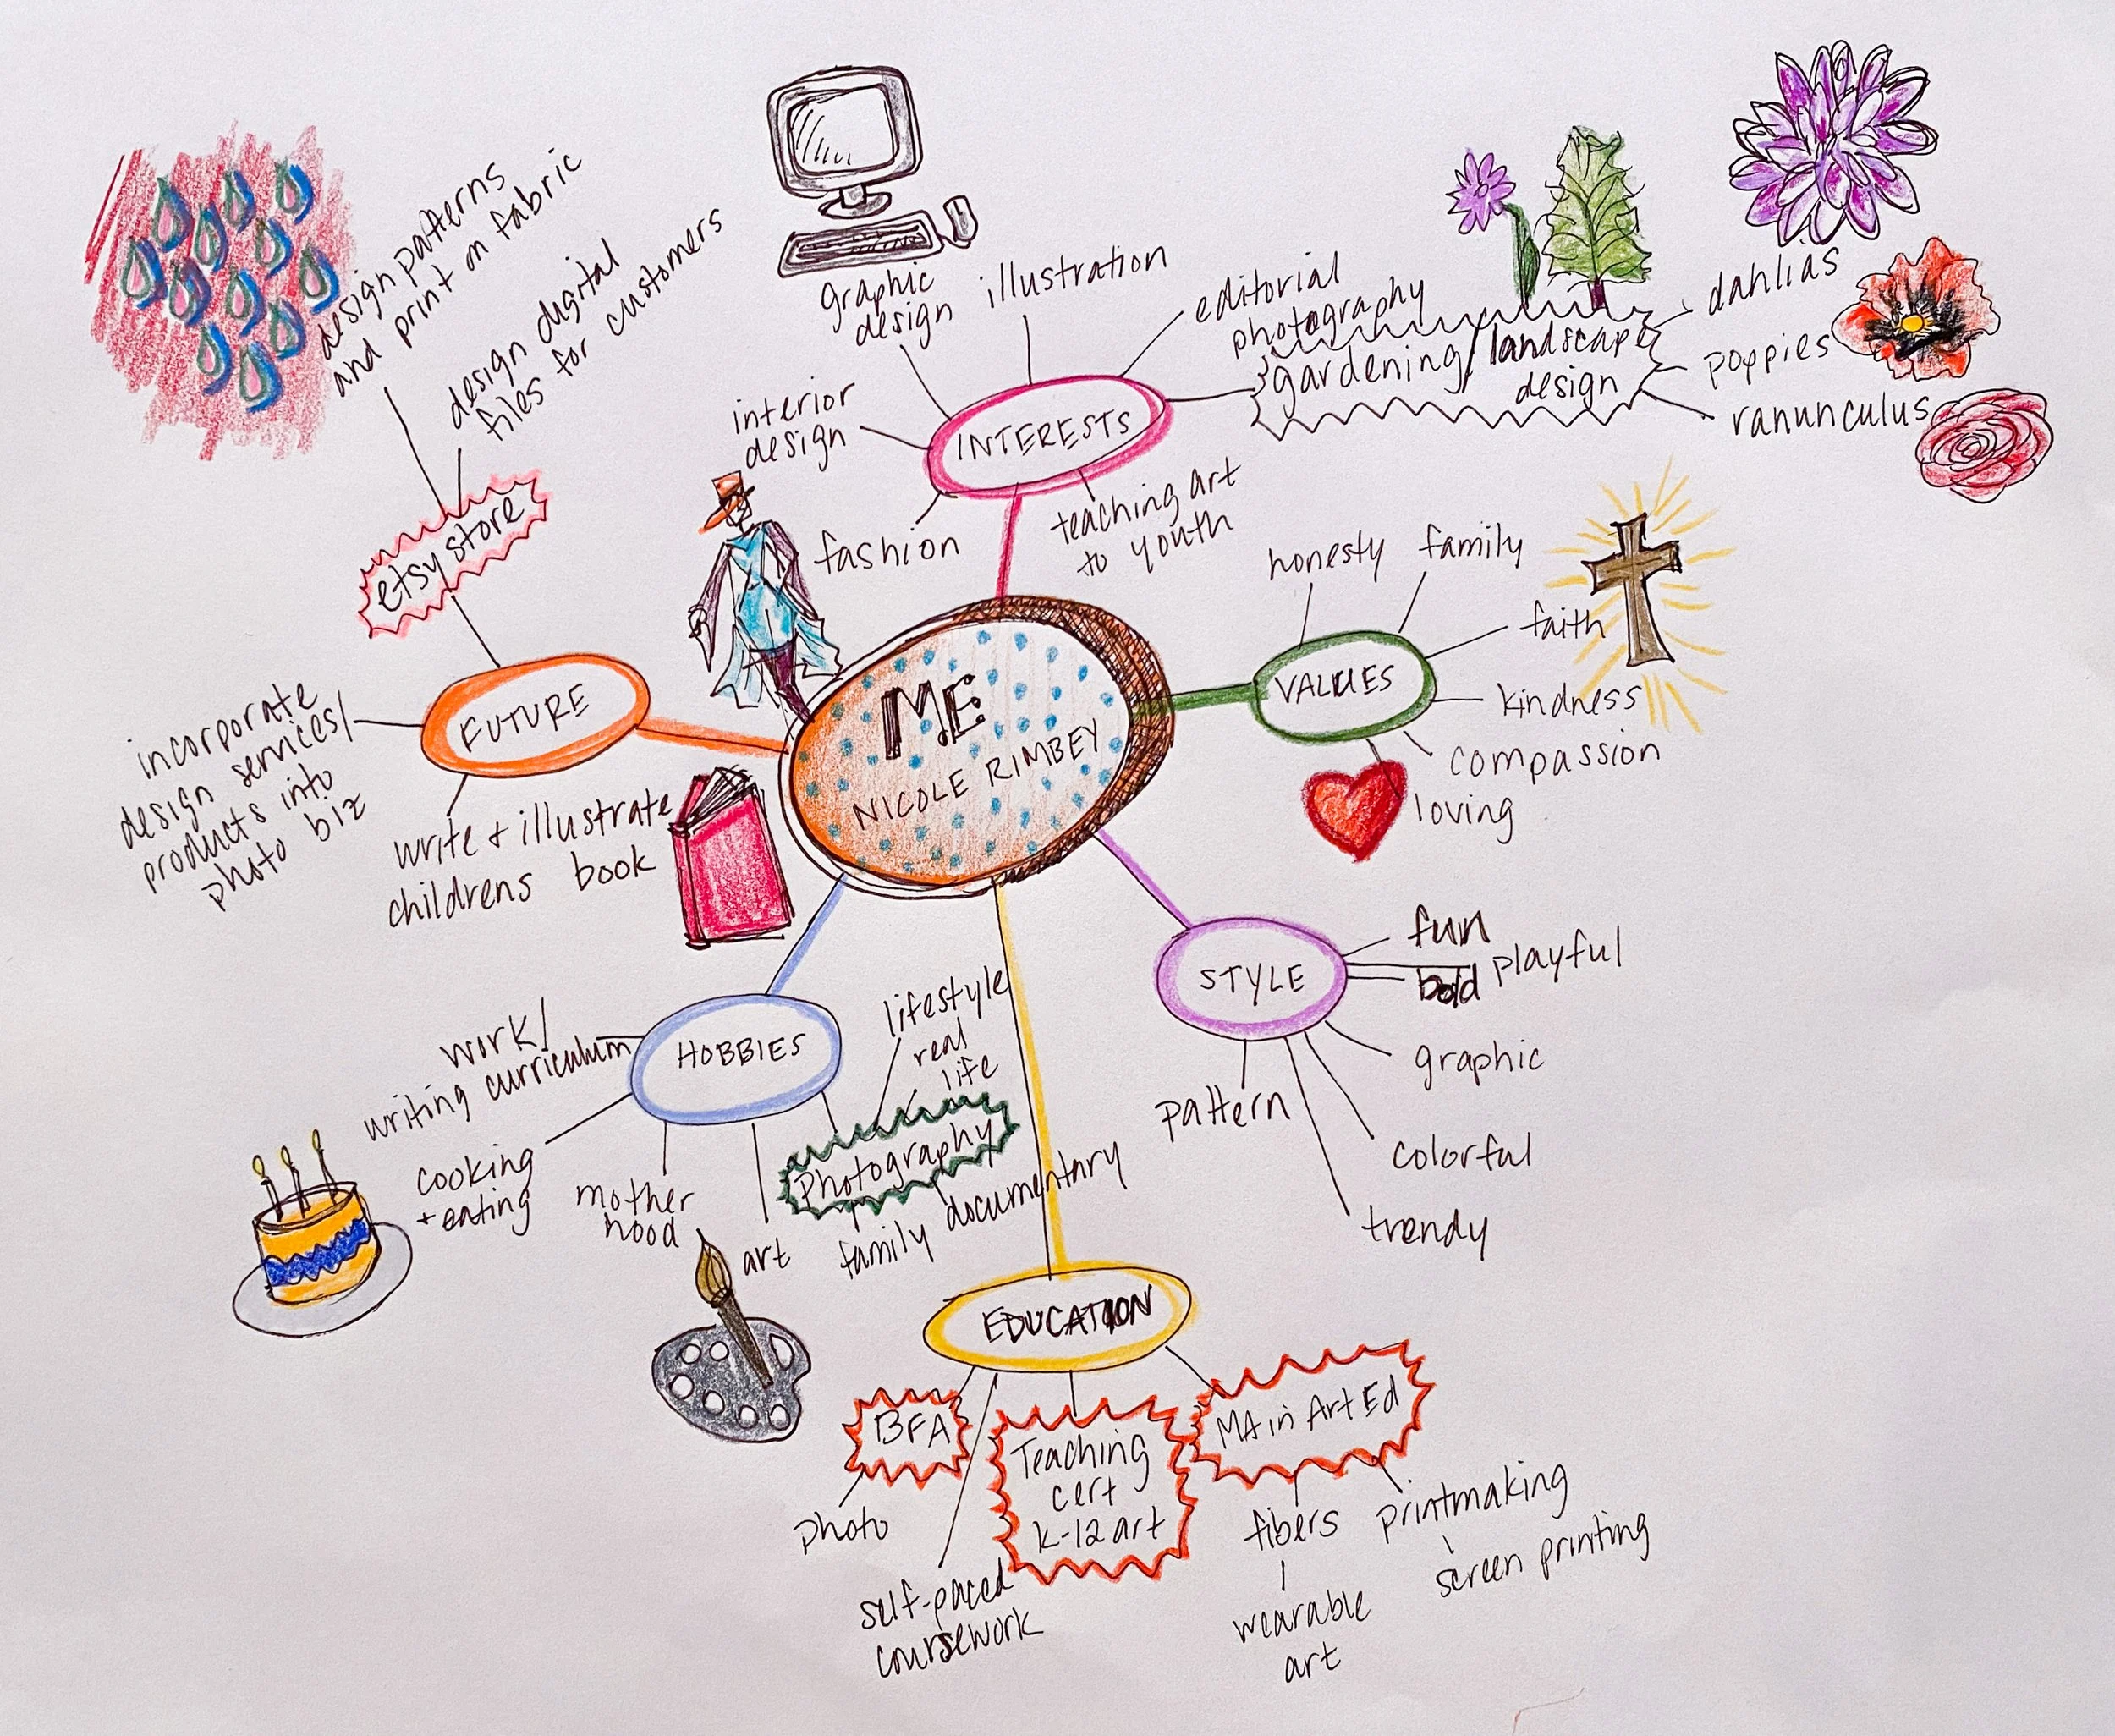 ME
NICOLE RIMBEY
INTERESTS
interior
design
graphic
design
illustration
editorial
photography
gardening/landscape
design
dahlias
poppies
ranunculus
teaching art
to youth
fashion
VALUES
honesty
family
faith
kindness
compassion
loving
STYLE
fun
playful
bold
graphic
colorful
trendy
pattern
EDUCATION
BFA
photo
self-paced
coursework
Teaching
cert
K-12 art
MA in Art Ed
fibers
wearable
art
printmaking
screen printing
HOBBIES
work/
writing curriculum
cooking
+ eating
mother
hood
art
photography
lifestyle
real
life
family
documentary
FUTURE
etsy store
design patterns
and print on fabric
design digital
files for customers
incorporate
design services/
products into
photo biz
write + illustrate
childrens book